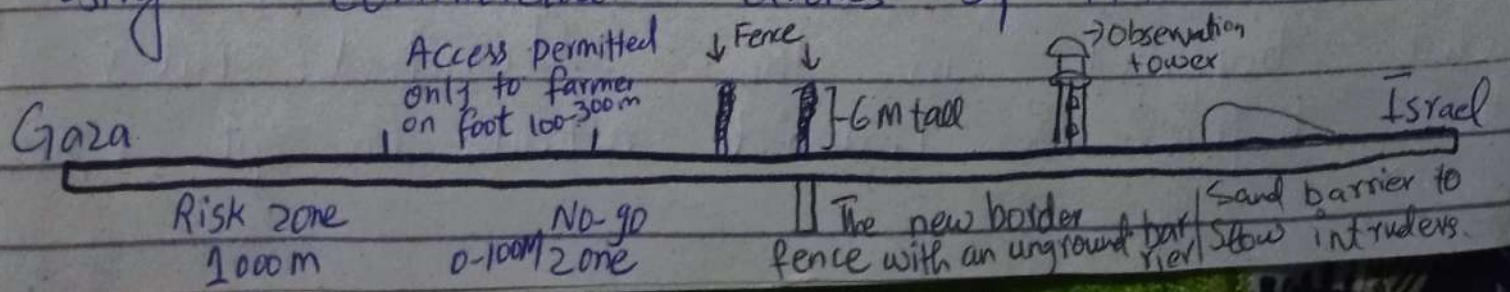 Access permitted
only to farmer
on foot 100-300m
↓ Fence
↓
→Observation
tower
Gaza
}-6m tall
Israel
Risk zone
1000m
No-go
0-100M zone
The new border
fence with an unground barrier
Sand barrier to
slow intruders.